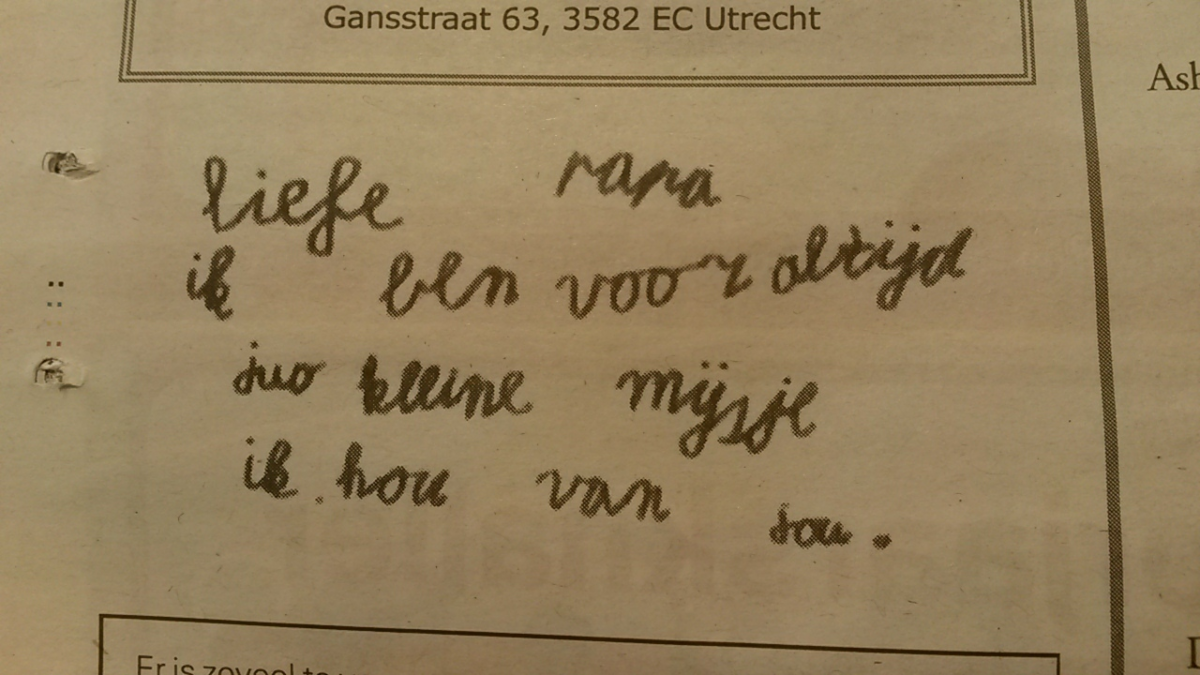 Gansstraat 63, 3582 EC Utrecht
Ash
liefe papa
ik ben voor altijd
juo kleine mijsje
ik hou van jou.
Er is zoveel te